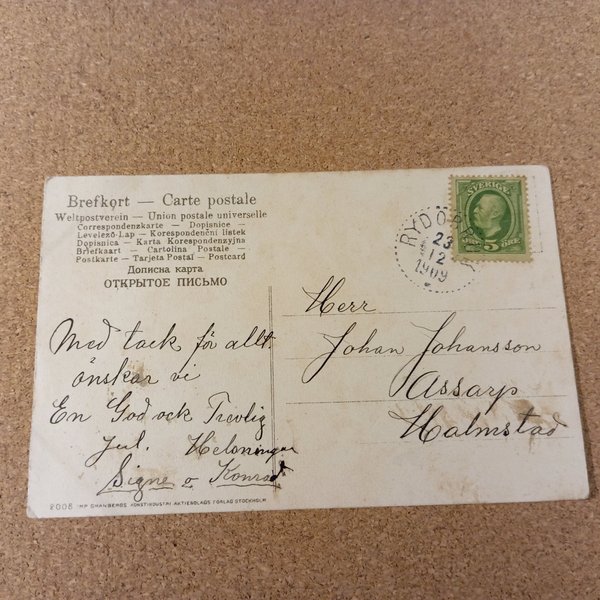 Brefkort — Carte postale
Weltpostverein — Union postale universelle
Correspondenzkarte — Dopisnice —
Levelező-Lap — Korespondenční listek
Dopisnica — Karta Korespondenzyjna
Briefkaart — Cartolina Postale —
Postkarte — Tarjeta Postal — Postcard
Дописна карта
ОТКРЫТОЕ ПИСЬМО
SVERIGE
5 ÖRE
23
12
1909
Herr
Johan Johansson
Assarp
Halmstad
Med tack för allt.
önskar vi
En God ock Trevlig
Jul.
Signe o Konrad
2008 AKTIEBOLAGS FÖRLAG STOCKHOLM